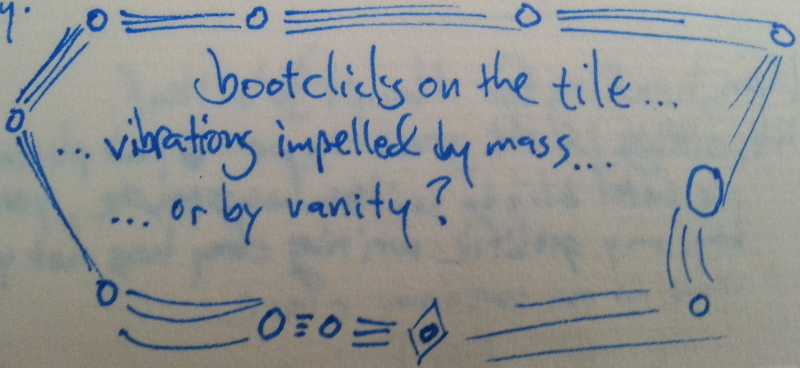 y.
bootclicks on the tile...
... vibrations impelled by mass...
... or by vanity?